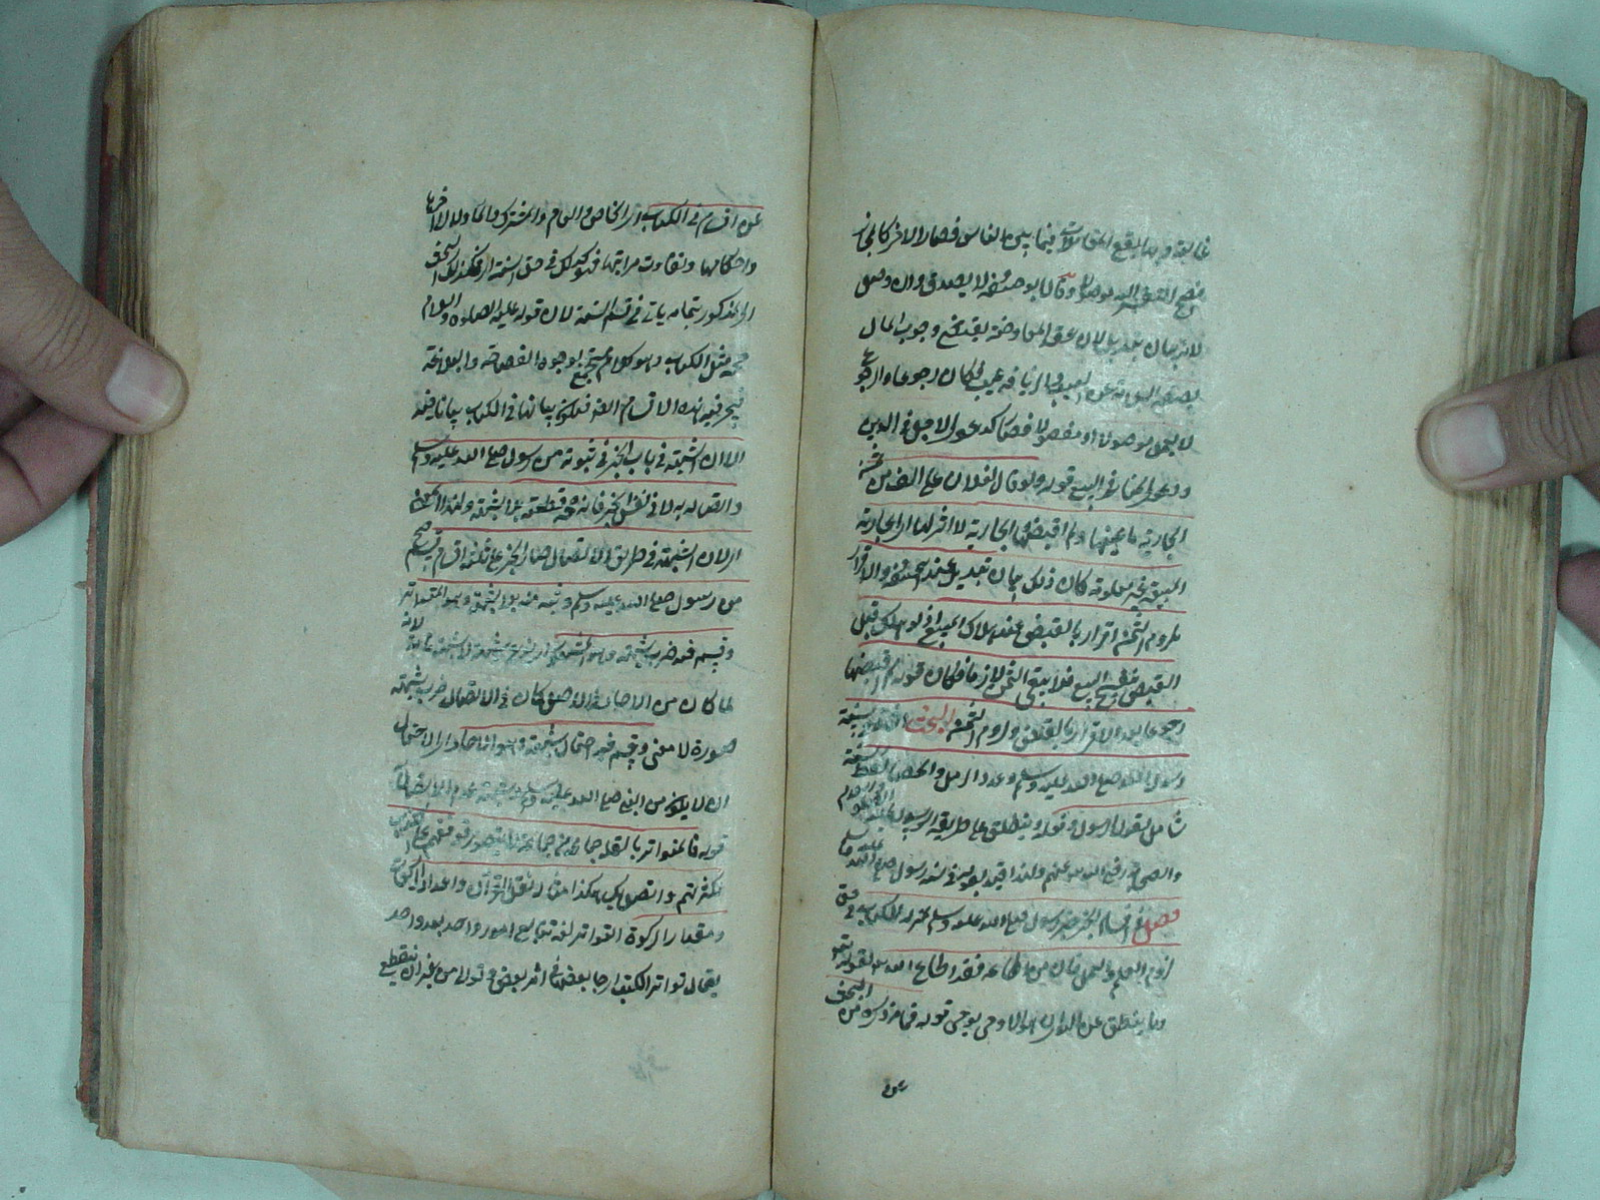 غالبة وبها يقع المقابلات فيما بين الناس فصار الاخر كالمجاز
فصح التفسير اليه موصولا وقالا ابو حنيفة لا يصدق وان وصل
لانه بيان تبديل لان عقد المعاوضة يقتضي وجوب المال
بصفة السلامة عن العيب والزيافة عيب فكان رجوعا والرجوع
لا يعمل موصولا او مفصولا فصار كدعوى الاجل في الدين
ودعوى الخيار في البيع قوله ولو قال لفلان علي الف من ثمن
الجارية باعنيها ولم اقبضها الجارية لا اثر لها اي الجارية
المبيعة غير معلومة كان ذلك بيان تبديل عند ابي حنيفة والاقرار
بلزوم الثمن اقرار بالقبض عند هلاك المبيع اذ لو هلك قبل
القبض ينفسخ البيع فلا يبقى الثمن لازما فكان قوله لم اقبضها
رجوعا بعد الاقرار بالقبض ولزوم الثمن البحث الثاني في سنة
رسول الله صلى الله عليه وسلم وعدد الرمل والحصى لفظ السنة
شامل لقول الرسول وفعله ويطلق على طريقة الرسول عليه السلام
والصحابة رضي الله عنهم ولذا قيد بقوله في سنة رسول صلى الله عليه وسلم
فصل في اقسام الخبر خبر رسول صلى الله عليه وسلم بمنزلة الكتاب في حق
لزوم العلم والعمل فان من اطاعه فقد اطاع الله لقوله تعالى
وما ينطق عن الهوى ان هو الا وحي يوحى قوله فما مر ذكره من البحث
عن اقسام في الكتاب اي الخاص والعام والمشترك والماول الى اخرها
واحكامها وتفاوت مراتبها فهو كذلك في حق السنة اي فكذلك البحث
المذكور بتمامه ياتي في قسم السنة لان قوله عليه الصلوة والسلام
حجة مثل الكتاب وهو كلام مستجمع لوجوه الفصاحة والبلاغة
فيجري فيه هذه الاقسام ايضا فيكون بيانها في الكتاب بيانا فيه
الا ان الشبهة في باب الخبر في ثبوته من رسول صلى الله عليه وسلم
واتصاله به لا في نفس الخبر فانه حجة قطعية بلا شبهة ولهذا المعنى
اي لان الشبهة في طريق الاتصال صار الخبر على ثلثة اقسام قسم صح
من رسول صلى الله عليه وسلم وثبت منه بلا شبهة وهو المتواتر
وقسم فيه ضرب شبهة وهو المشهور اي نوع شبهة لا شبهة تامة لانه
لما كان من الاحاد في الاصل كان في الاتصال ضرب شبهة
صورة لا معنى وقسم فيه احتمال وشبهة وهو الاحاد اي الاحتمال
ان لا يكون من النبي صلى الله عليه وسلم وشبهة عدم الاتصال
قوله فالمتواتر ما نقله جماعة عن جماعة لا يتصور توافقهم على الكذب
لكثرتهم واتصل بك هكذا مثاله نقل القران واعداد الركعات
ومقدار الزكوة التواتر لغة تتابع امور واحد بعد واحد
يقال تواتر الكتب اي جا بعضها في اثر بعض وترا من غير ان ينقطع
عن